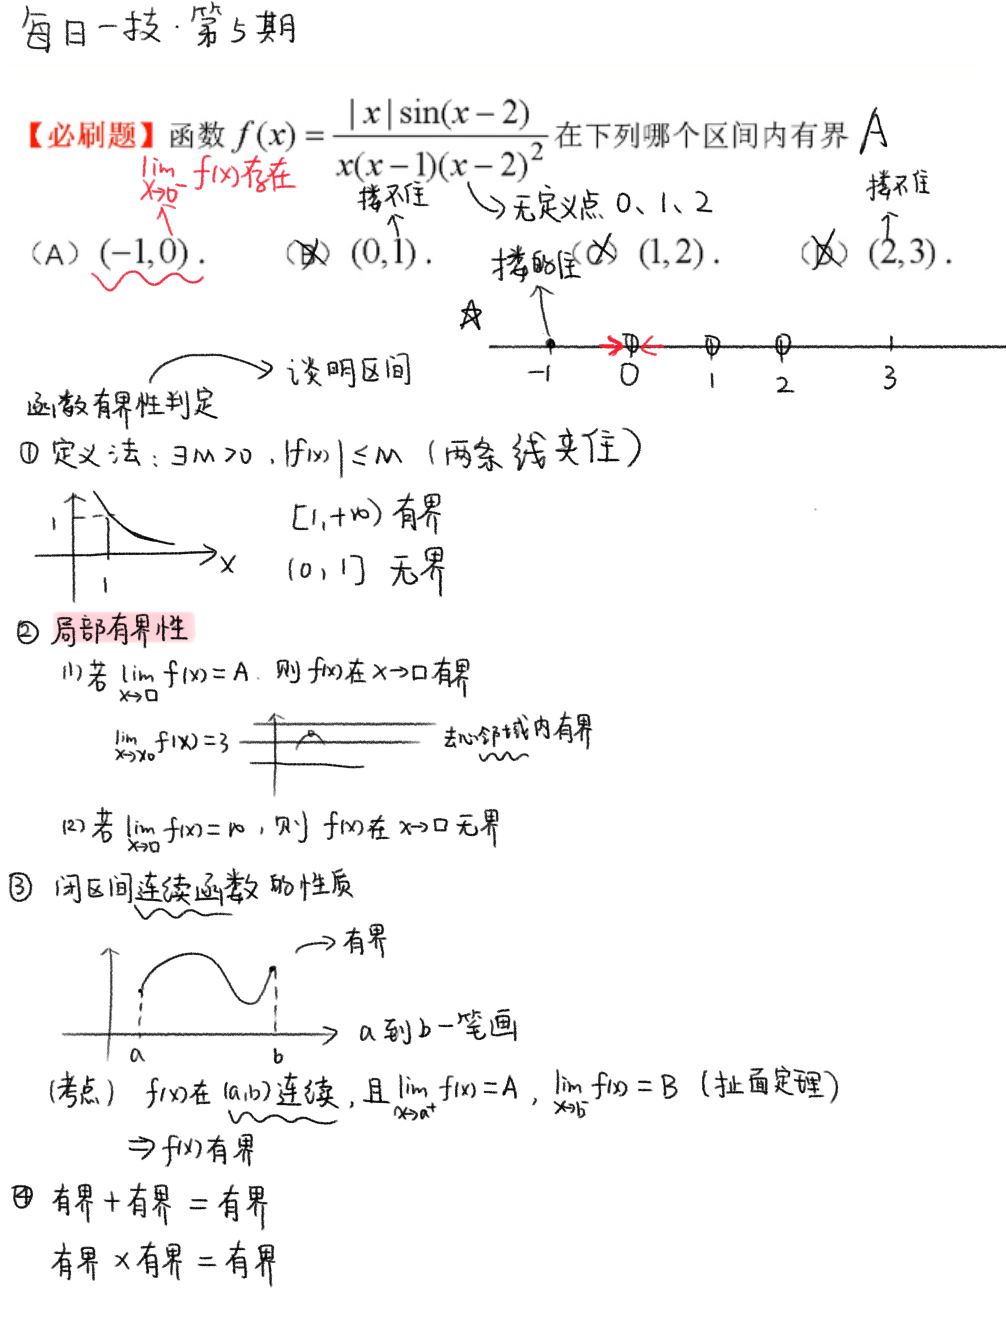 每日一技·第5期
【必刷题】函数 f(x) = |x|sin(x−2) / x(x−1)(x−2)² 在下列哪个区间内有界 A
lim x→0⁻ f(x)存在
搂不住
→无定义点 0、1、2
搂不住
(A) (−1,0). (B) (0,1). (C) (1,2). (D) (2,3).
搂的住
☆
−1 0 1 2 3
函数有界性判定 → 谈明区间
① 定义法：∃M>0，|f(x)|≤M（两条线夹住）
1 1 x
[1,+∞) 有界
(0,1] 无界
② 局部有界性
(1) 若 lim x→□ f(x)=A. 则 f(x)在 x→□有界
lim x→x₀ f(x)=3 去心邻域内有界
(2) 若 lim x→□ f(x)=∞，则 f(x)在 x→□无界
③ 闭区间连续函数的性质
→有界
a b
a到b一笔画
(考点) f(x)在(a,b)连续，且 lim x→a⁺ f(x)=A，lim x→b⁻ f(x)=B（扯面定理）
⇒ f(x)有界
④ 有界+有界=有界
有界×有界=有界